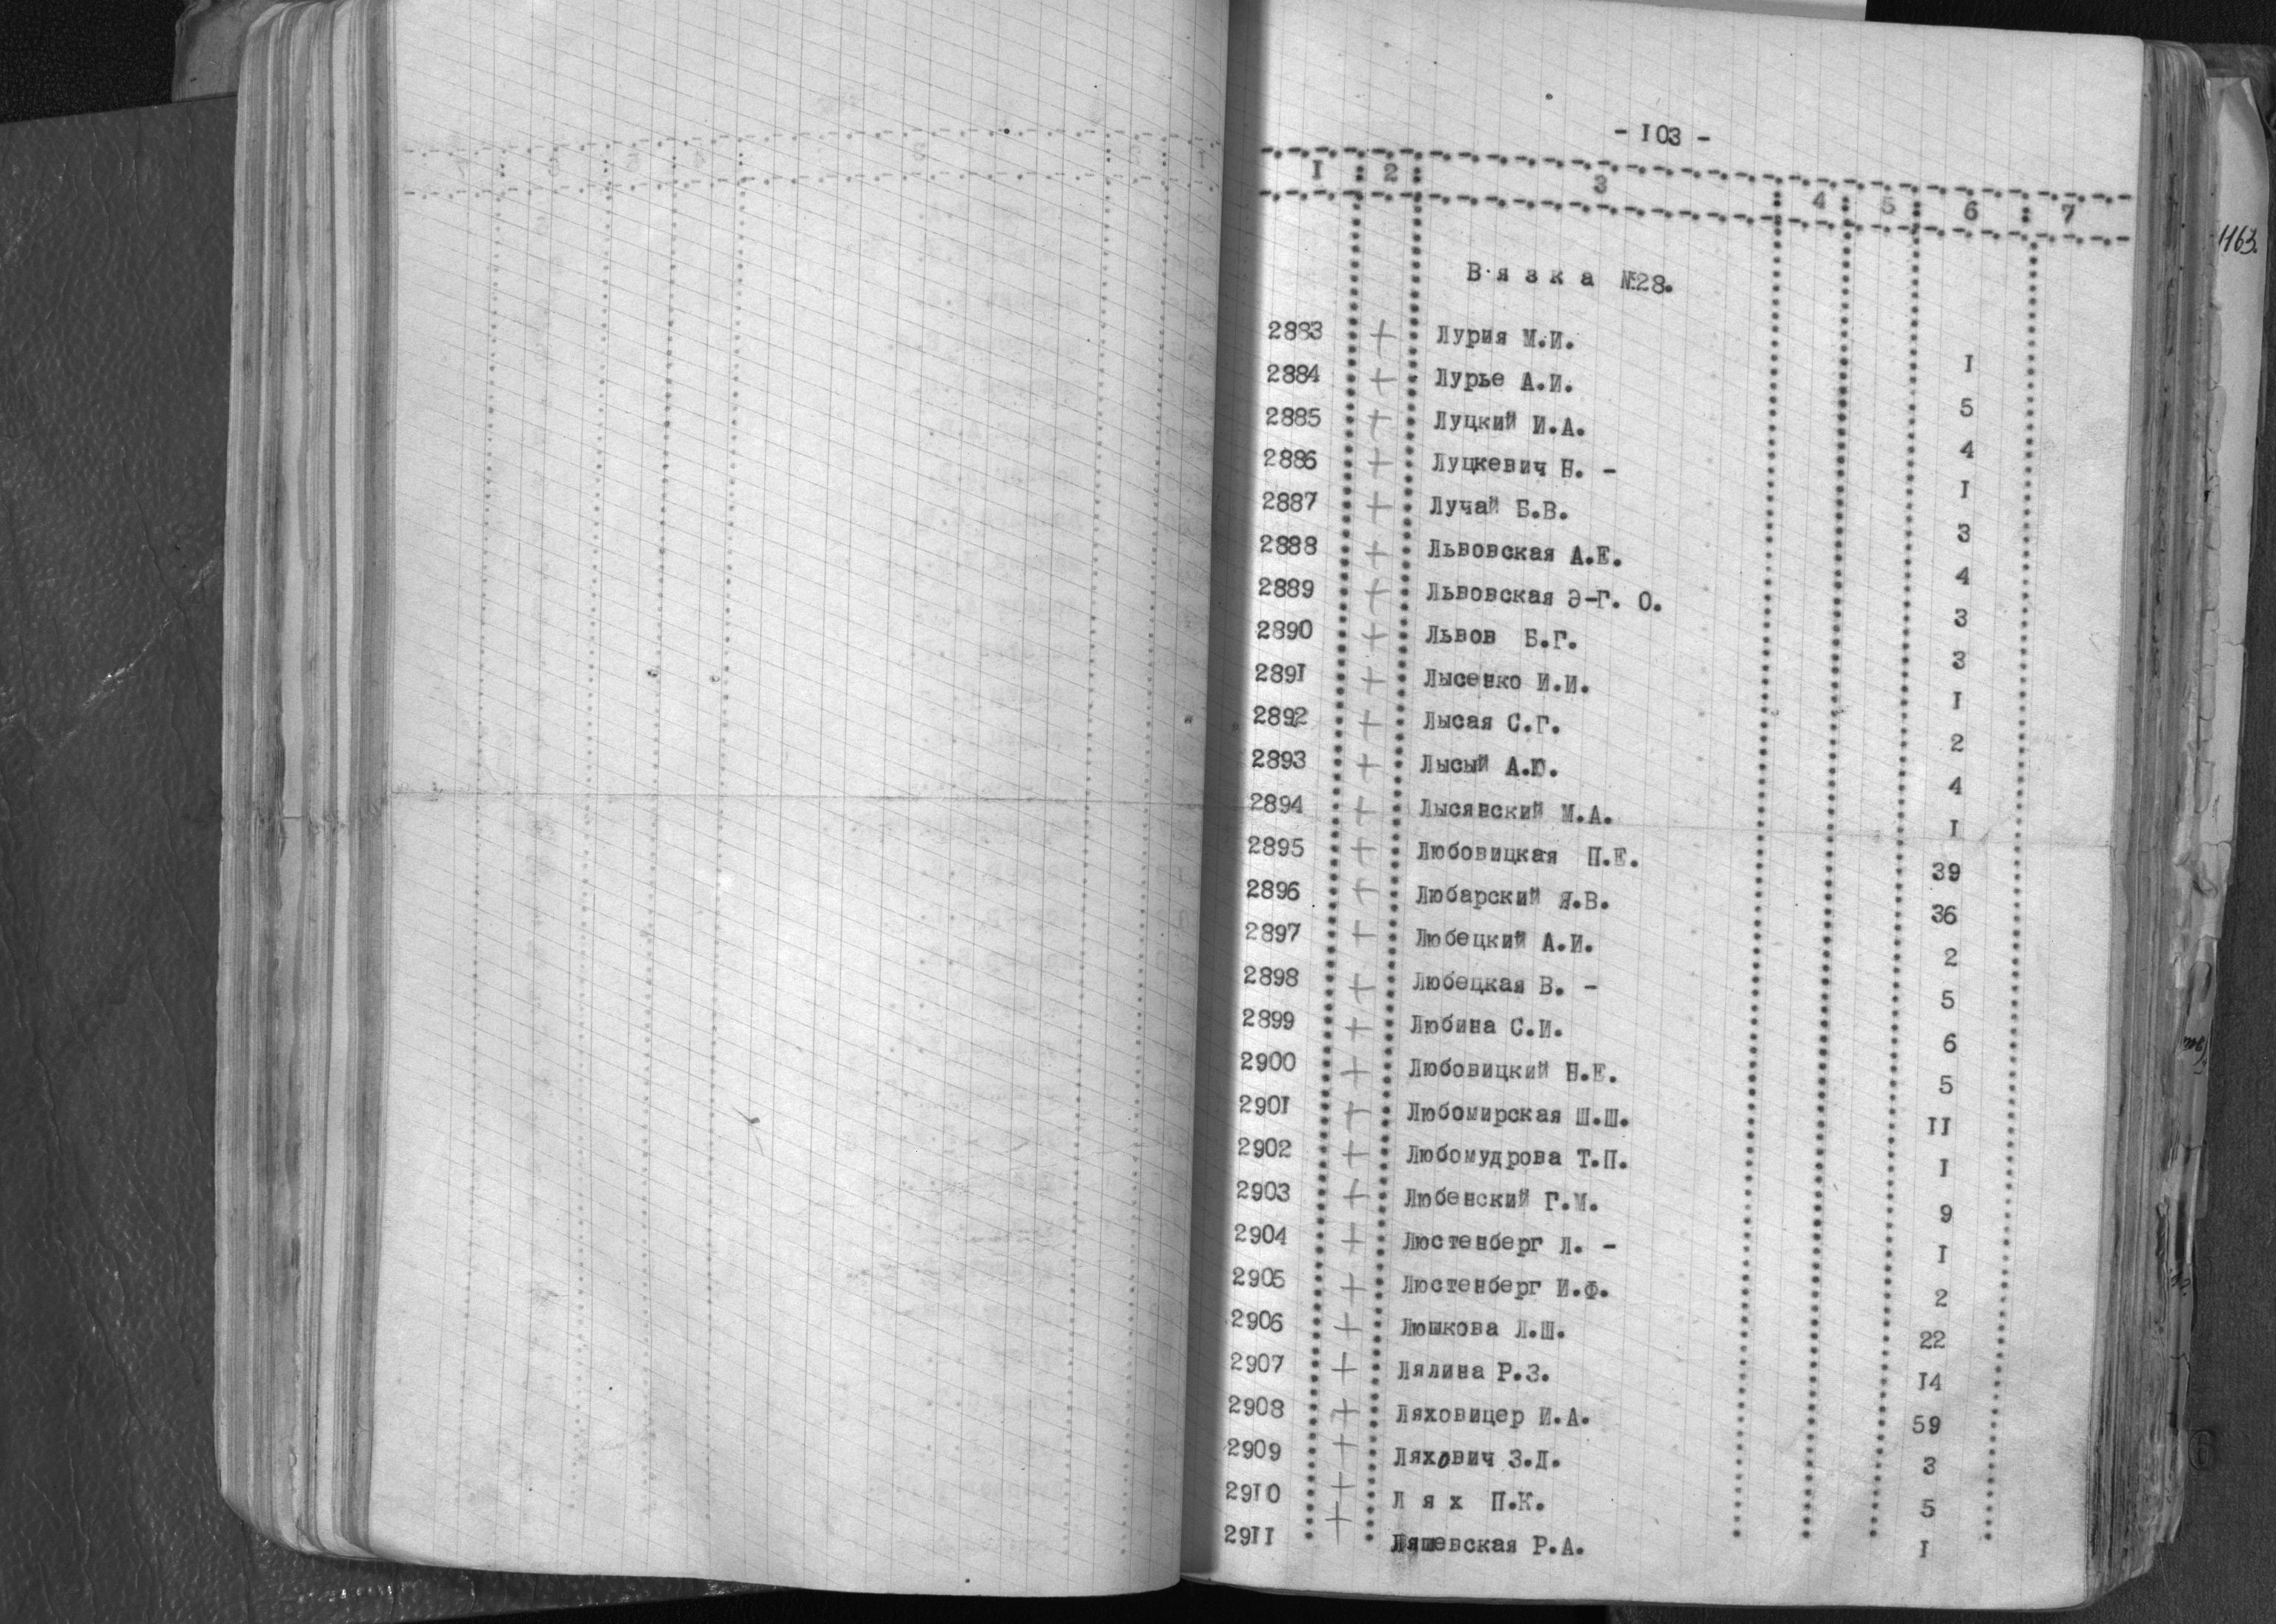 - I03 -
I 2 3 4 5 6 7
1163.
Вязка №28.
2883 + Лурия М.И. I
2884 + Лурье А.И. 5
2885 + Луцкий И.А. 4
2886 + Луцкевич Н. - I
2887 + Лучай Б.В. 3
2888 + Львовская А.Е. 4
2889 + Львовская Э-Г. О. 3
2890 + Львов Б.Г. 3
289I + Лысенко И.И. I
2892 + Лысая С.Г. 2
2893 + Лысый А.Ю. 4
2894 + Лысявский М.А. I
2895 + Любовицкая П.Е. 39
2896 + Любарский Я.В. 36
2897 + Любецкий А.И. 2
2898 + Любецкая В. - 5
2899 + Любина С.И. 6
2900 + Любовицкий Н.Е. 5
290I + Любомирская Ш.Ш. II
2902 + Любомудрова Т.П. I
2903 + Любенский Г.М. 9
2904 + Люстенберг Л. - I
2905 + Люстенберг И.Ф. 2
2906 + Люшкова Л.Ш. 22
2907 + Лялина Р.З. I4
2908 + Ляховицер И.А. 59
2909 + Ляхович З.Д. 3
29I0 + Лях П.К. 5
29II + Ляшевская Р.А. I